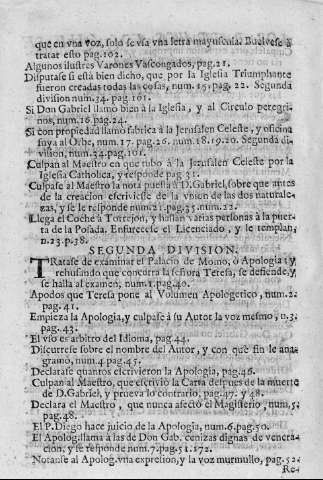 que en vna voz, solo se vsa vna letra mayuscula. Buelvese à
tratar esto pag.102.
Algunos ilustres Varones Vascongados, pag.21.
Disputase si està bien dicho, que por la Iglesia Triumphante
fueron creadas todas las cosas, num.15. pag. 22. Segunda
division num.34. pag.101.
Si Don Gabriel llamo bien à la Iglesia, y al Circulo peregri-
nos, num.16.pag.24.
Si con propiedad llamo fabrica à la Jerusalen Celeste, y oficina
suya al Orbe, num.17. pag.26. num.18.19.20. Segunda di-
vision, num.34.pag.101.
Culpan al Maestro en que tubo à la Jerusalen Celeste por la
Iglesia Catholica, y responde pag.31.
Culpase al Maestro la nota puesta à D.Gabriel, sobre que antes
de la creacion escriviesse de la vnion de las dos naturale-
zas, y se le responde num.21.pag.35.num.22.
Llega el Coche à Torrejon, y hallan varias personas à la puer-
ta de la Posada. Enfurecese el Licenciado, y le templan,
n.23.p.38.
SEGUNDA DIVISION.
TRatase de examinar el Palacio de Momo, ò Apologia; y
rehusando que concurra la señora Teresa, se defiende, y
se halla al examen, num.1.pag.40.
Apodos que Teresa pone al Volumen Apologetico, num.2.
pag.41.
Empieza la Apologia, y culpase à su Autor la voz mesmo, n.3.
pag.43.
El vso es arbitro del Idioma, pag.44.
Discurrese sobre el nombre del Autor, y con què fin le ana-
gramò, num.4.pag.45.
Declarase quantos escrivieron la Apologia, pag.46.
Culpan al Maestro, que escriviò la Carta despues de la muerte
de D.Gabriel, y prueva lo contrario, pag.47. y 48.
Declara el Maestro, que nunca afectò el Magisterio, num.5.
pag.48.
El P.Diego hace juicio de la Apologia, num.6.pag.50.
El Apolog.llama à las de Don Gab. cenizas dignas de venera-
cion, y se responde num.7.pag.51.172.
Notanse al Apolog.vna expresion, y la voz murmullo, pag.52.
Re-